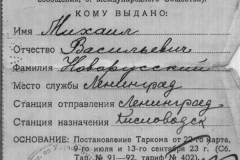 сообщения, с. международного Общества).
КОМУ ВЫДАНО:
Имя Михаил
Отчество Васильевич
Фамилия Новорусский
Место службы Ленинград
Станция отправления Ленинград
Станция назначения Кисловодск
ОСНОВАНИЕ: Постановление Таркома от 22-го марта,
9-го июля и 13-го сентября 23 г. (Сб.
Тар. № 91—92, тариф № 402).